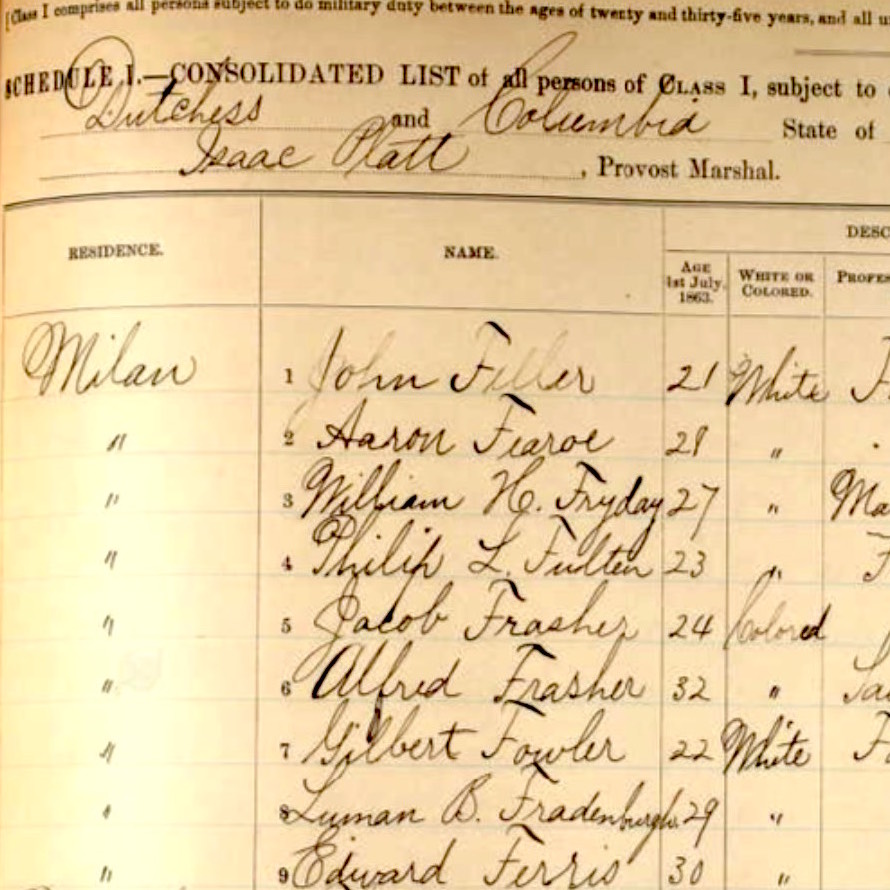 [Class I comprises all persons subject to do military duty between the ages of twenty and thirty-five years, and all u
SCHEDULE I.—CONSOLIDATED LIST of all persons of CLASS I, subject to
Dutchess and Columbia State of
Isaac Platt, Provost Marshal.
DESC
RESIDENCE. NAME. AGE 1st July, 1863. WHITE OR COLORED. PROFES
Milan 1 John Feller 21 White F
" 2 Aaron Fearoe 21 "
" 3 William H. Fryday 27 " Ma
" 4 Philip L. Fulten 23 " F
" 5 Jacob Frasher 24 Colored
" 6 Alfred Frasher 32 "
" 7 Gilbert Fowler 22 White F
" 8 Luman B. Fradenburgh 29 "
" 9 Edward Ferris 30 "